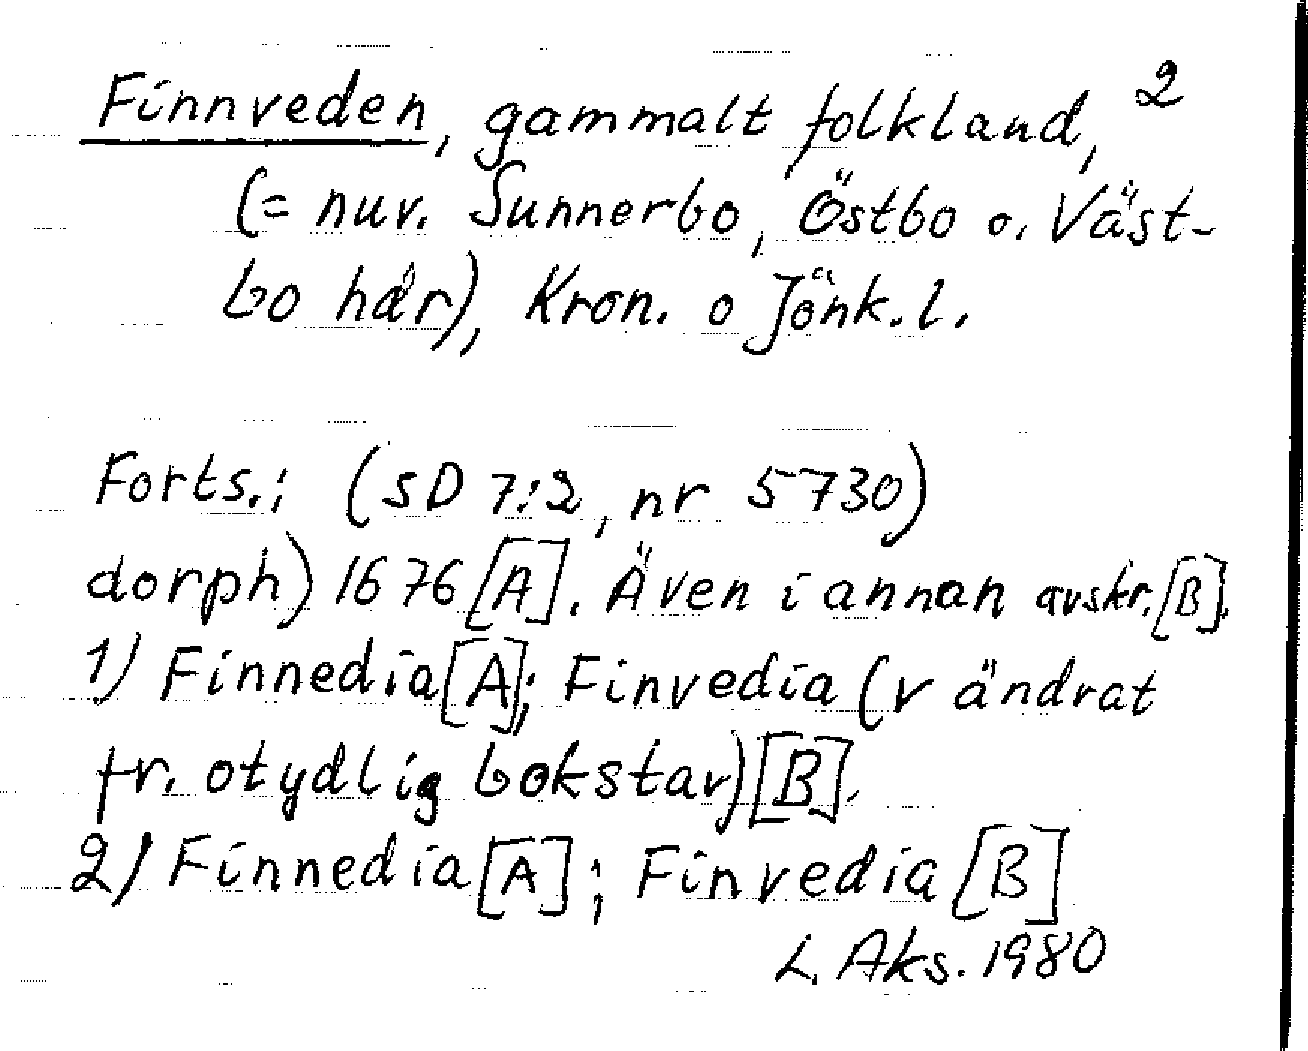 Finnveden, gammalt folkland, 2
(= nuv. Sunnerbo, Östbo o. Väst-
bo här), Kron. o Jönk. l.
Forts.: (SD 7:2, nr 5730)
dorph) 1676 [A]. Även i annan avskr. [B].
1) Finnedia [A]; Finvedia (v ändrat
fr. otydlig bokstav) [B].
2) Finnedia [A]; Finvedia [B]
L. Aks. 1980